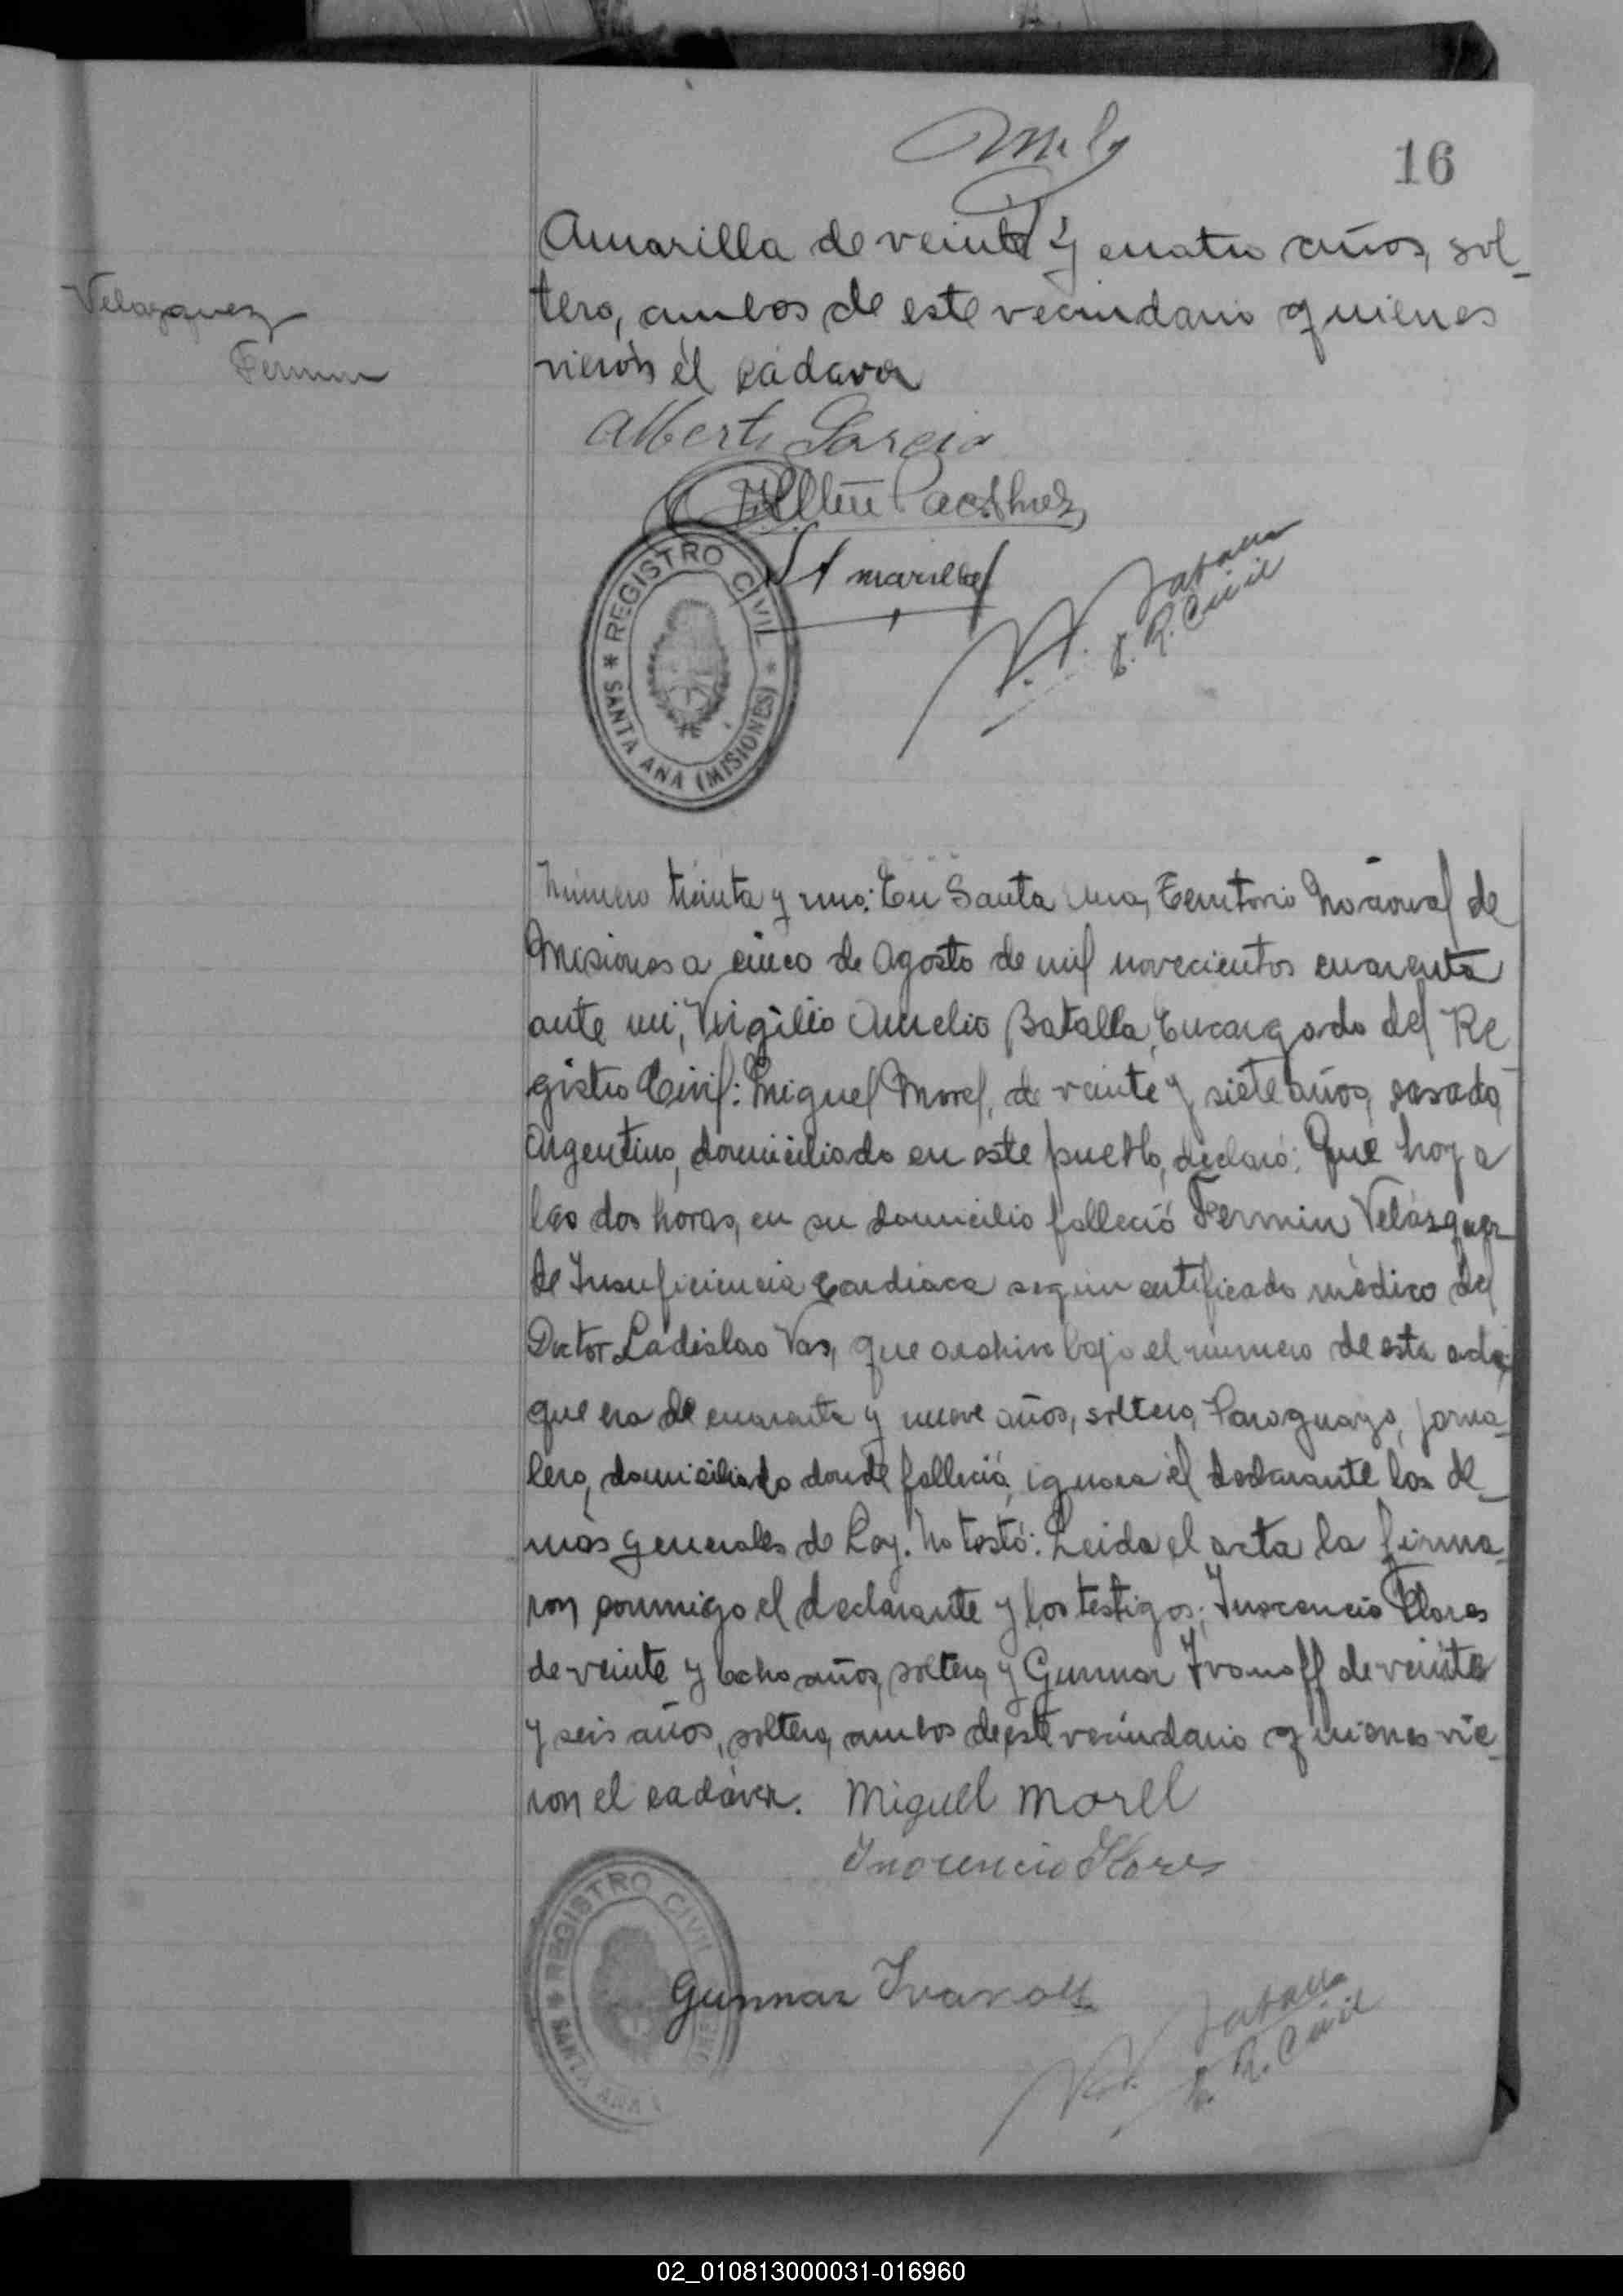 16
Amarilla de veinte y cuatro años, sol-
tero, ambos de este vecindario quienes
vieron el cadaver
Velazquez
Fermin
Alberto Garcia
Amarilla
E. R. Civil
* REGISTRO CIVIL *
SANTA ANA (MISIONES)
Número treinta y uno: En Santa Ana, Territorio Nacional de
Misiones a cinco de Agosto de mil novecientos cuarenta
ante mi, Virgilio Aurelio Batalla, Encargado del Re-
gistro Civil: Miguel Morel, de veinte y siete años, casado,
Argentino, domiciliado en este pueblo, declaró: Que hoy a
las dos horas, en su domicilio falleció Fermin Velázquez
de Insuficiencia Cardiaca según certificado médico del
Doctor Ladislao Vas, que archivo bajo el número de esta acta,
que era de cuarenta y nueve años, soltero, Paraguayo, jorna-
lero, domiciliado donde falleció, ignora el declarante las de-
más generales de Ley. No testó: Leida el acta la firma-
ron conmigo el declarante y los testigos: Inocencio Flores
de veinte y ocho años, soltero, y Gunnar Ivanoff de veinte
y seis años, soltero, ambos de este vecindario quienes vie-
ron el cadáver. Miguel Morel
Inocencio Flores
* REGISTRO CIVIL
SANTA ANA
Gunnar Ivanoff
E. R. Civil
02_010813000031-016960